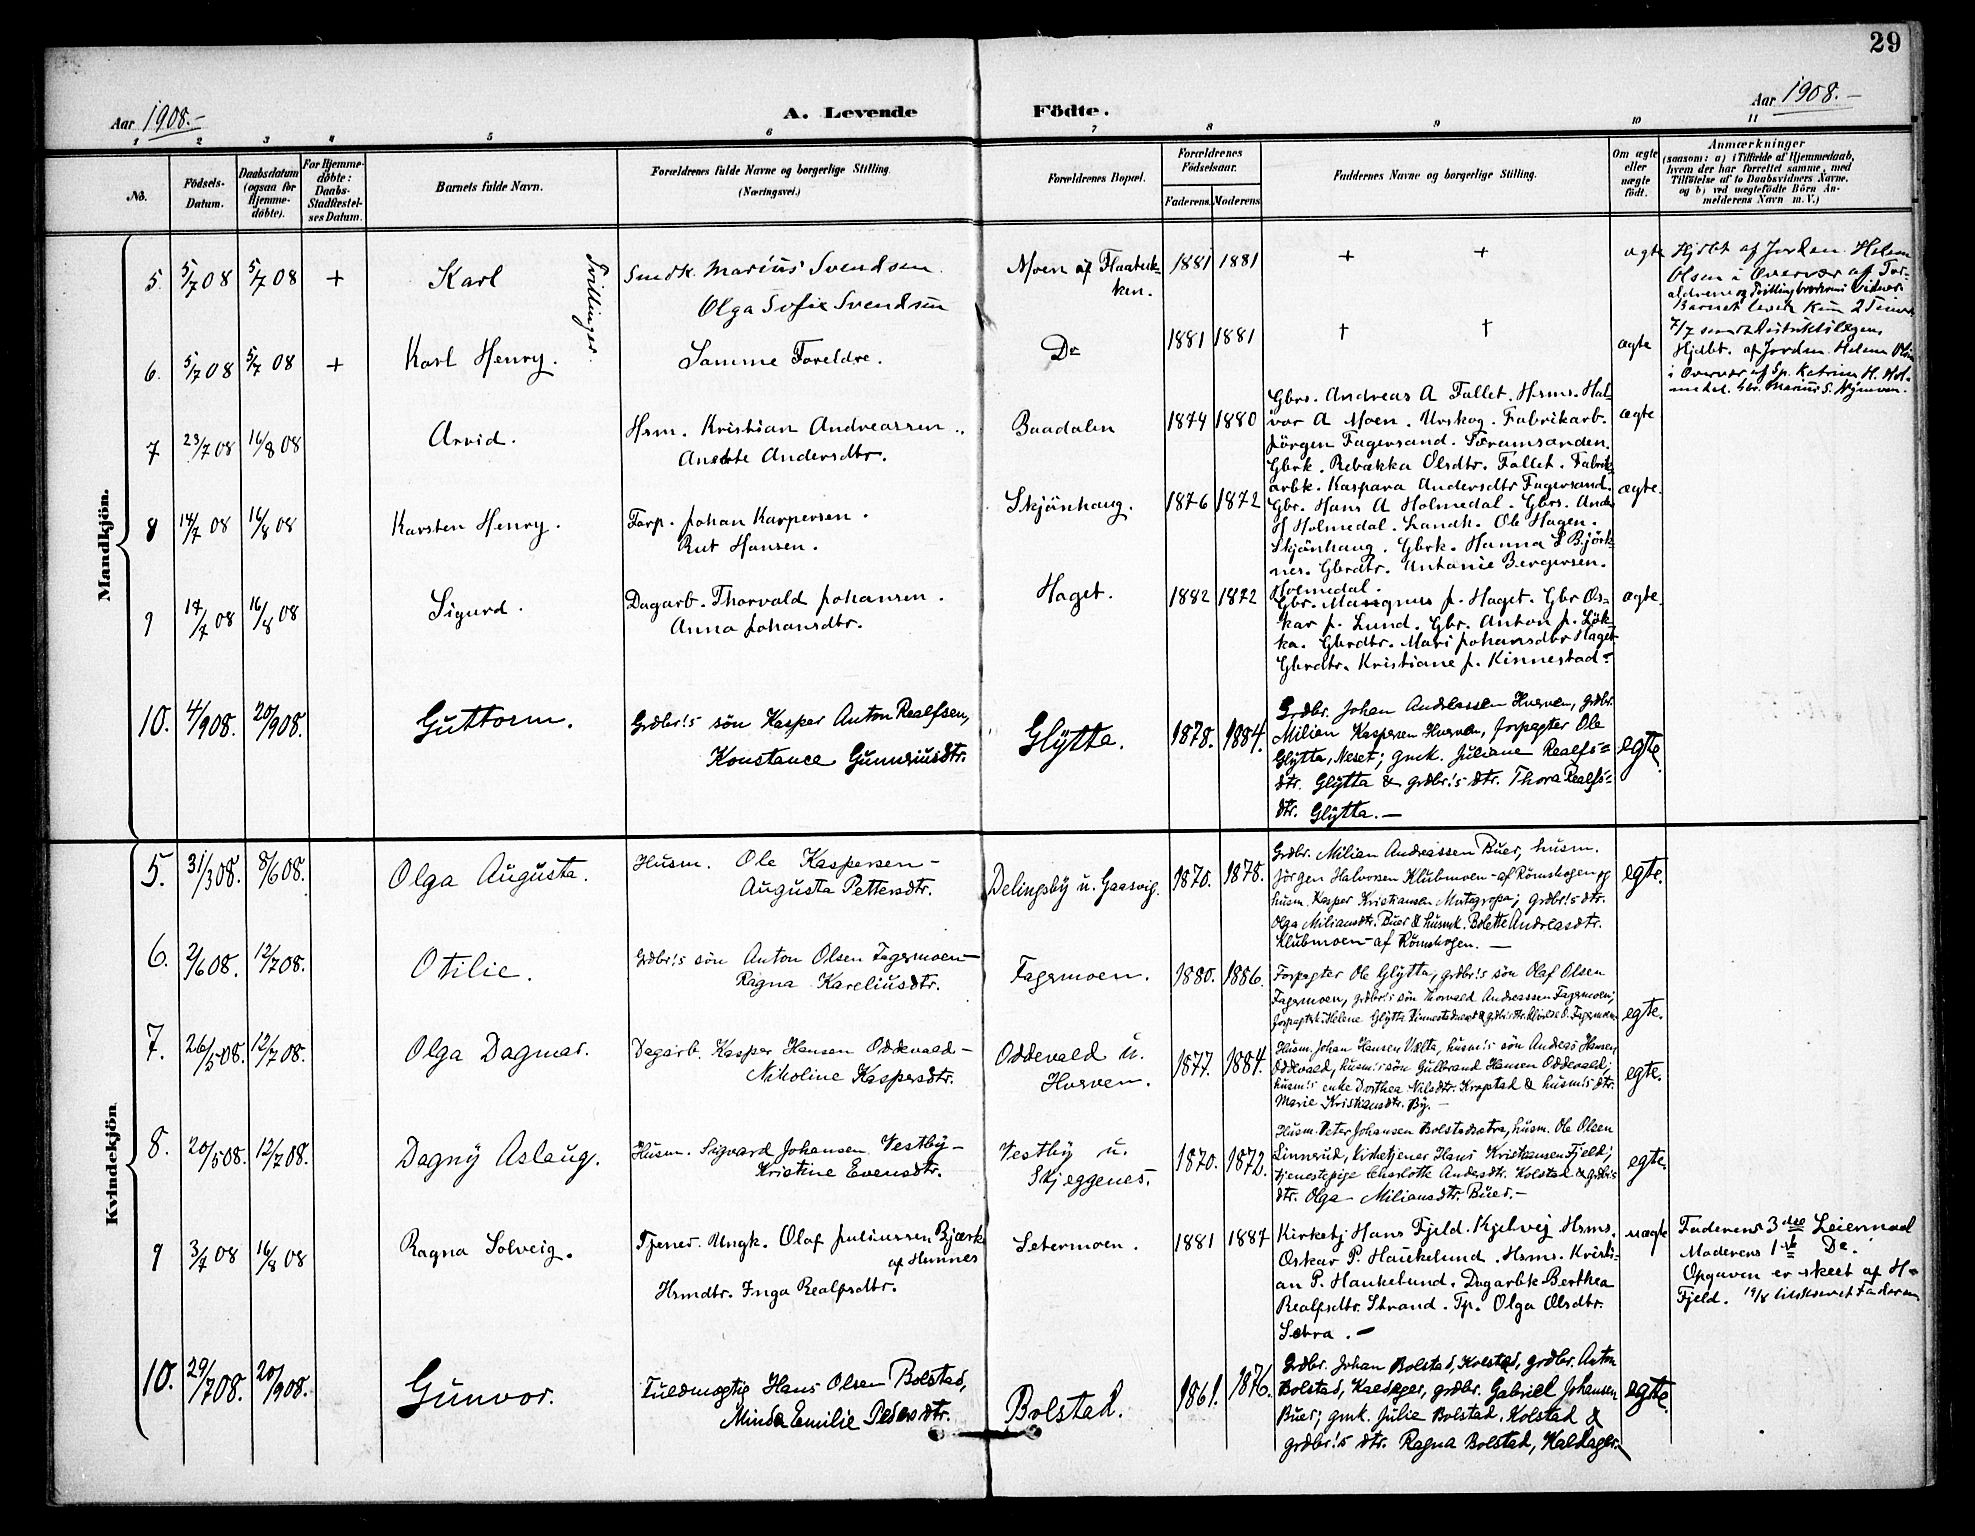 29
Aar 1908.-
A. Levende Födte.
Aar 1908.-
1 2 3 4 5 6 7 8 9 10 11
No.
Födsels-Datum.
Daabsdatum (ogsaa for Hjemme-döbte).
For Hjemme-döbte: Daabs-Stadfæstel-ses Datum.
Barnets fulde Navn.
Forældrenes fulde Navne og borgerlige Stilling
(Næringsvei.)
Forældrenes Bopæl.
Forældrenes Födselsaar.
Faderens. Moderens.
Faddernes Navne og borgerlige Stilling.
Om ægte eller uægte födt.
Anmærkninger
(saasom: a) i Tilfælde af Hjemmedaab,
hvem der har forrettet samme, med
Tilföielse af to Daabsvidners Navne.
og b) ved uægtefödte Börn An-
melderens Navn m. V.)
Mandkjön.
5. 5/7 08 5/7 08 + Karl
Tvillinger.
Smdk. Marius Svendsen
Olga Sofie Svendsen
Moen af Flaatbæk-
ken.
1881 1881 + +
ægte
Hjdbt af Jordm. Helene
Olsen i Overvær af For-
ældrene og Tvillingbroderens Vidner.
Barnet levet kun 2 Timer
6. 5/7 08 5/7 08 + Karl Henry.
Samme Foreldre.
Do
1881 1881 † †
ægte
Hjdbt. af Jordm. Helene Olsen
i Overvær af Sp. Katrine H. Hol-
7 23/7 08 16/8 08 Arvid.
Hrm. Kristian Andreassen
Anette Andersdtr.
Baadalen
1874 1880
Gbrs. Andreas A Fallet. Hrms. Hal-
vor A Moen. Urskog. Fabrikarb.
Jörgen Fagersand. Söramsanden.
Gbrk. Rebækka Olsdtr. Fallet. Fabrik-
arbk. Kaspara Andersdtr Fagersand.
ægte
8 14/7 08 16/8 08 Karsten Henry.
Forp. Johan Karpersen.
Rut Hansen.
Skjönhaug.
1876 1872
Gbr. Hans A Holmedal. Gbrs. Anders
H Holmedal. Landh. Ole Hagen.
Skjönhaug. Gbrk. Hanna L Björk-
nes. Gbrdtr. Antonie Bergersen.
Holmedal.
ægte.
9 17/7 08 16/8 08 Sigurd.
Dagarb. Thorvald Johansen.
Anna Johansdtr.
Haget.
1882 1872
Gbr. Magnus J. Haget. Gbr Os-
kar J. Lund. Gbr. Anton J. Lök-
ka. Gbrdtr. Mari Johansdtr Haget
Gbrdtr. Kristiane J. Kinnestad.
ægte.
10. 4/9 08. 20/9 08. Guttorm.
Grdbr!s sön Kasper Anton Realfsen,
Konstance Gunneriusdtr.
Glÿtta.
1878. 1884.
Grdbr. Johan Andreassen Hverven, grdbr.
Milian Kaspersen Hverven, forpagter Ole
Glÿtta, Neset; gmk. Juliane Realfs-
dtr. Glÿtta & grdbr!s dtr. Thora Realfs-
dtr. Glÿtta.-
egte.
Kvindekjön
5. 31/3 08. 8/6 08. Olga Augusta.
Husm. Ole Kaspersen-
Augusta Pettersdtr.
Delingsbÿ u. Gaasvig.
1870. 1878.
Grdbr. Milian Andreassen Buer, husm.
Jörgen Halvorsen Klubmoen-af Römskogen og
husm. Kasper Kristiansen Mortagropa; grdbr!s dtr.
Olga Miliansdtr. Buer & husmk. Bolette Andreasdtr.
Klubmoen-af Römskogen. -
egte.
6. 2/6 08. 12/7 08. Otilie.
Grdbr!s sön Anton Olsen Fagermoen-
Ragna Kareliusdtr.
Fagermoen.
1880. 1886.
Forpagter Ole Glÿtta, grdbr!s sön Olaf Olsen
Fagermoen, grdbr!s sön Thorvald Andreassen Fagermoen;
egte.
7. 26/5 08. 12/7 08. Olga Dagmar.
Dagarb. Kasper Hansen Oddevald-
Nikoline Kaspersdtr.
Oddevald u.
Hverven.
1877. 1884.
Husm. Johan Hansen Vælta, husm!s sön Andreas Hansen
Oddevald, husm!s sön Gulbrand Hansen Oddevald;
husm!s enke Dorthea Nilsdtr. Krogstad & husm!s dtr.
Marie Kristiansdtr. Bÿ.-
egte.
8. 20/5 08. 12/7 08. Dagnÿ Aslaug.
Husm. Sigvard Johansen Vestbÿ-
Kristine Evensdtr.
Vestbÿ u.
Skjeggenes.
1870. 1872.
Husm. Peter Johansen Bolstadsætra, husm. Ole Olsen
Linnerud, kirketjener Hans Kristiansen Fjeld;
tjenestepige Charlotte Andersdtr. Kolstad & grdbr!s
dtr. Olga Miliansdtr. Buer.-
egte.
9 3/7 08 16/8 08 Ragna Solveig.
Tjener. Ungk. Olaf Juliussen Bjærk
af Hemnes
Hrmdtr. Inga Realfsdtr.
Setermoen.
1881 1887
Kirketj Hans Fjeld. Kjelvej Hrms.
Oskar P. Haukelund. Hrms. Kristi-
an P. Haukelund. Dagarbk Berthea
Realfsdtr. Strand. Tp. Olga Olsdtr.
Sætra.-
uægte
Faderens 3die Leiermaal
Moderens 1ste Do.
Opgaven er skeet af H-
Fjeld. 19/8 tilskrevet Faderen
10. 29/7 08. 20/9 08. Gunvor.
Fuldmægtig Hans Olsen Bolstad,
Minda Emilie Pedersdtr.
Bolstad.
1861. 1876.
Grdbr. Johan Bolstad, Kolstad, grdbr. Anton
Bolstad, Kaldager, grdbr. Gabriel Johansen
Buer; gmk. Julie Bolstad, Kolstad &
grdbr!s dtr. Ragna Bolstad, Kaldager.
egte.